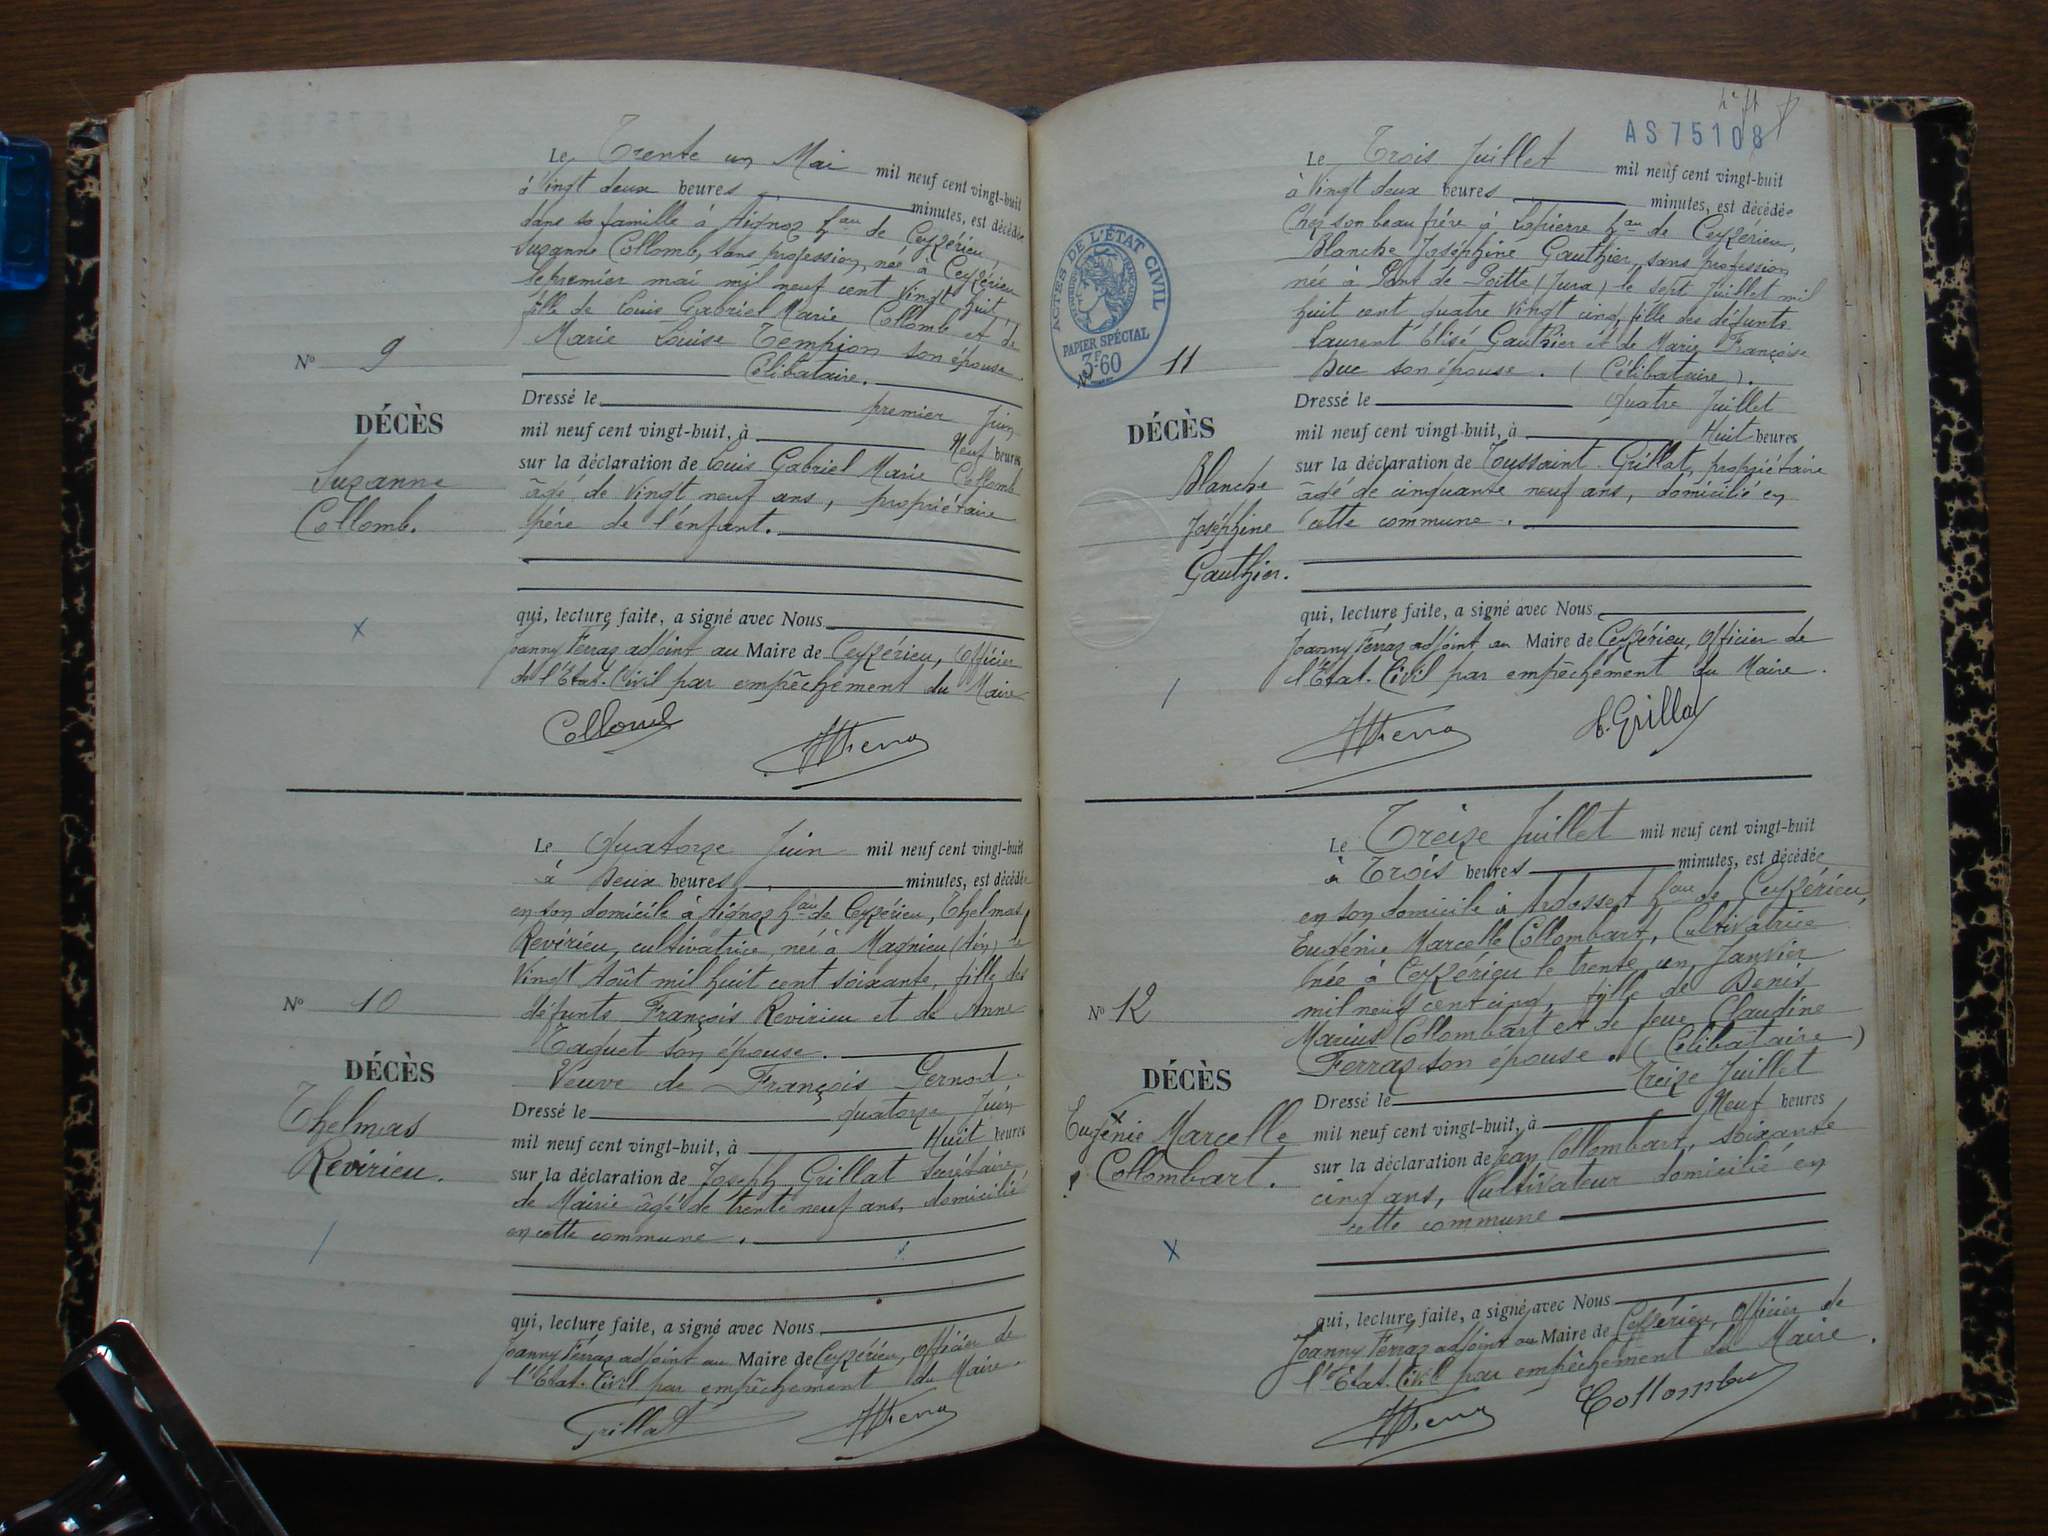 Le Trente un Mai mil neuf cent vingt-huit
à Vingt deux heures minutes, est décédée
dans sa famille à Aignoz hau de Ceyzérieu,
Suzanne Collomb, sans profession, née à Ceyzérieu
le premier mai mil neuf cent vingt huit,
fille de Louis Gabriel Marie Collomb et de
Marie Louise Tempion son épouse.
Célibataire.
N° 9
DÉCÈS
Suzanne
Collomb.
Dressé le premier Juin
mil neuf cent vingt-huit, à Neuf heures
sur la déclaration de Louis Gabriel Marie Collomb
âgé de vingt neuf ans, propriétaire
père de l'enfant.
qui, lecture faite, a signé avec Nous
Joanny Ferraz adjoint au Maire de Ceyzérieu, Officier
de l'Etat-Civil par empêchement du Maire
Collomb
Le Quatorze Juin mil neuf cent vingt-huit
à Deux heures minutes, est décédée
en son domicile à Aignoz hau de Ceyzérieu, Thelmas
Revirieu, cultivatrice, née à Magnieu (Ain) le
Vingt Août mil huit cent soixante, fille des
défunts François Revirieu et de Anne
Taquet son épouse.
Veuve de François Pernod.
N° 10
DÉCÈS
Thelmas
Revirieu.
Dressé le quatorze Juin
mil neuf cent vingt-huit, à Huit heures
sur la déclaration de Joseph Grillat Secrétaire
de Mairie âgé de trente neuf ans, domicilié
en cette commune.
qui, lecture faite, a signé avec Nous
Joanny Ferraz adjoint au Maire de Ceyzérieu, Officier de
l'Etat-Civil par empêchement du Maire.
Grillat
AS75108
ACTES DE L'ÉTAT CIVIL
PAPIER SPÉCIAL
3F60
Le Trois Juillet mil neuf cent vingt-huit
à Vingt deux heures minutes, est décédée
Chez son beau frère à Lapierre hau de Ceyzérieu,
Blanche Joséphine Gauthier, sans profession
née à Pont de Poitte (Jura) le sept Juillet mil
huit cent quatre vingt cinq, fille des défunts
Laurent Elisé Gauthier et de Marie Françoise
Buc son épouse. (Célibataire).
N° 11
DÉCÈS
Blanche
Joséphine
Gauthier.
Dressé le Quatre Juillet
mil neuf cent vingt-huit, à Huit heures
sur la déclaration de Toussaint Grillat, propriétaire
âgé de cinquante neuf ans, domicilié en
cette commune.
qui, lecture faite, a signé avec Nous
Joanny Ferraz adjoint au Maire de Ceyzérieu, Officier de
l'Etat-Civil par empêchement du Maire.
Grillat
Le Treize Juillet mil neuf cent vingt-huit
à Trois heures minutes, est décédée
en son domicile à Ardosset hau de Ceyzérieu,
Eugénie Marcelle Collombart, Cultivatrice
née à Ceyzérieu le trente un Janvier
mil neuf cent cinq, fille de Denis
Marius Collombart et de feue Claudine
Ferraz son épouse. (Célibataire)
N° 12
DÉCÈS
Eugénie Marcelle
Collombart.
Dressé le treize Juillet
mil neuf cent vingt-huit, à Neuf heures
sur la déclaration de Jean Collombart, soixante
cinq ans, Cultivateur domicilié en
cette commune
qui, lecture faite, a signé avec Nous
Joanny Ferraz adjoint au Maire de Ceyzérieu, Officier de
l'Etat-Civil par empêchement du Maire.